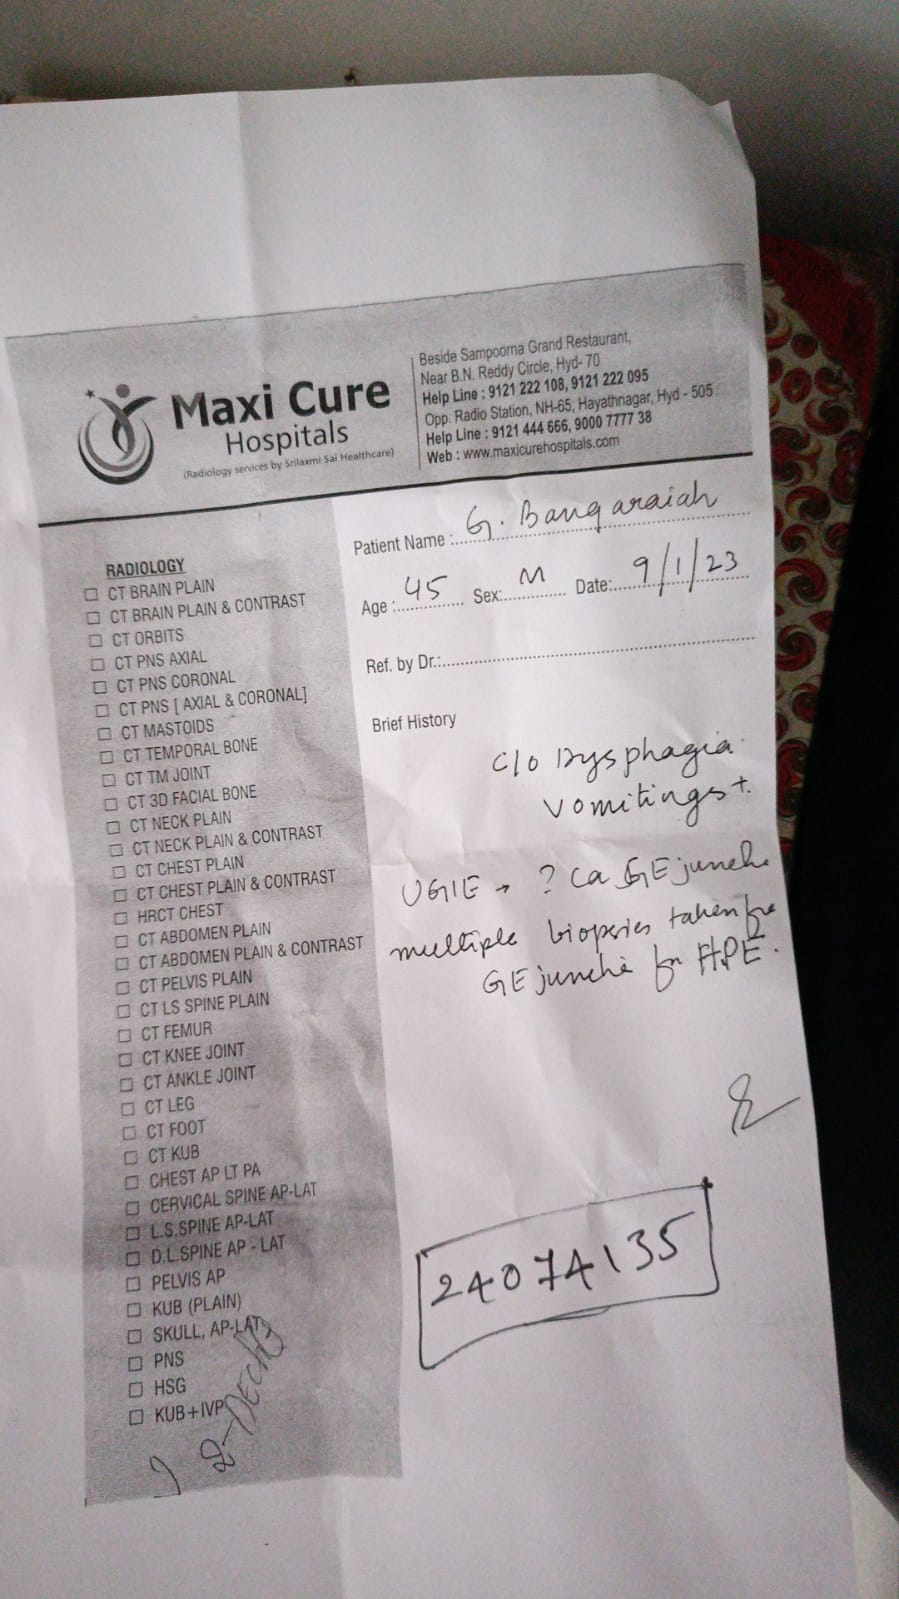 Maxi Cure
Hospitals
(Radiology services by Srilaxmi Sai Healthcare)
Beside Sampoorna Grand Restaurant,
Near B.N. Reddy Circle, Hyd- 70
Help Line : 9121 222 108, 9121 222 095
Opp. Radio Station, NH-65, Hayathnagar, Hyd - 505
Help Line : 9121 444 666, 9000 7777 38
Web : www.maxicurehospitals.com
Patient Name : G. Bangaraiah
Age : 45 Sex: M Date: 9/1/23
Ref. by Dr.:
Brief History
c/o Dysphagia
Vomitings +.
UGIE → ? Ca GE junctn
multiple biopsies taken
GE junctn for HPE.
24074135
RADIOLOGY
CT BRAIN PLAIN
CT BRAIN PLAIN & CONTRAST
CT ORBITS
CT PNS AXIAL
CT PNS CORONAL
CT PNS [ AXIAL & CORONAL]
CT MASTOIDS
CT TEMPORAL BONE
CT TM JOINT
CT 3D FACIAL BONE
CT NECK PLAIN
CT NECK PLAIN & CONTRAST
CT CHEST PLAIN
CT CHEST PLAIN & CONTRAST
HRCT CHEST
CT ABDOMEN PLAIN
CT ABDOMEN PLAIN & CONTRAST
CT PELVIS PLAIN
CT LS SPINE PLAIN
CT FEMUR
CT KNEE JOINT
CT ANKLE JOINT
CT LEG
CT FOOT
CT KUB
CHEST AP LT PA
CERVICAL SPINE AP-LAT
L.S.SPINE AP-LAT
D.L.SPINE AP - LAT
PELVIS AP
KUB (PLAIN)
SKULL, AP-LAT
PNS
HSG
KUB+IVP